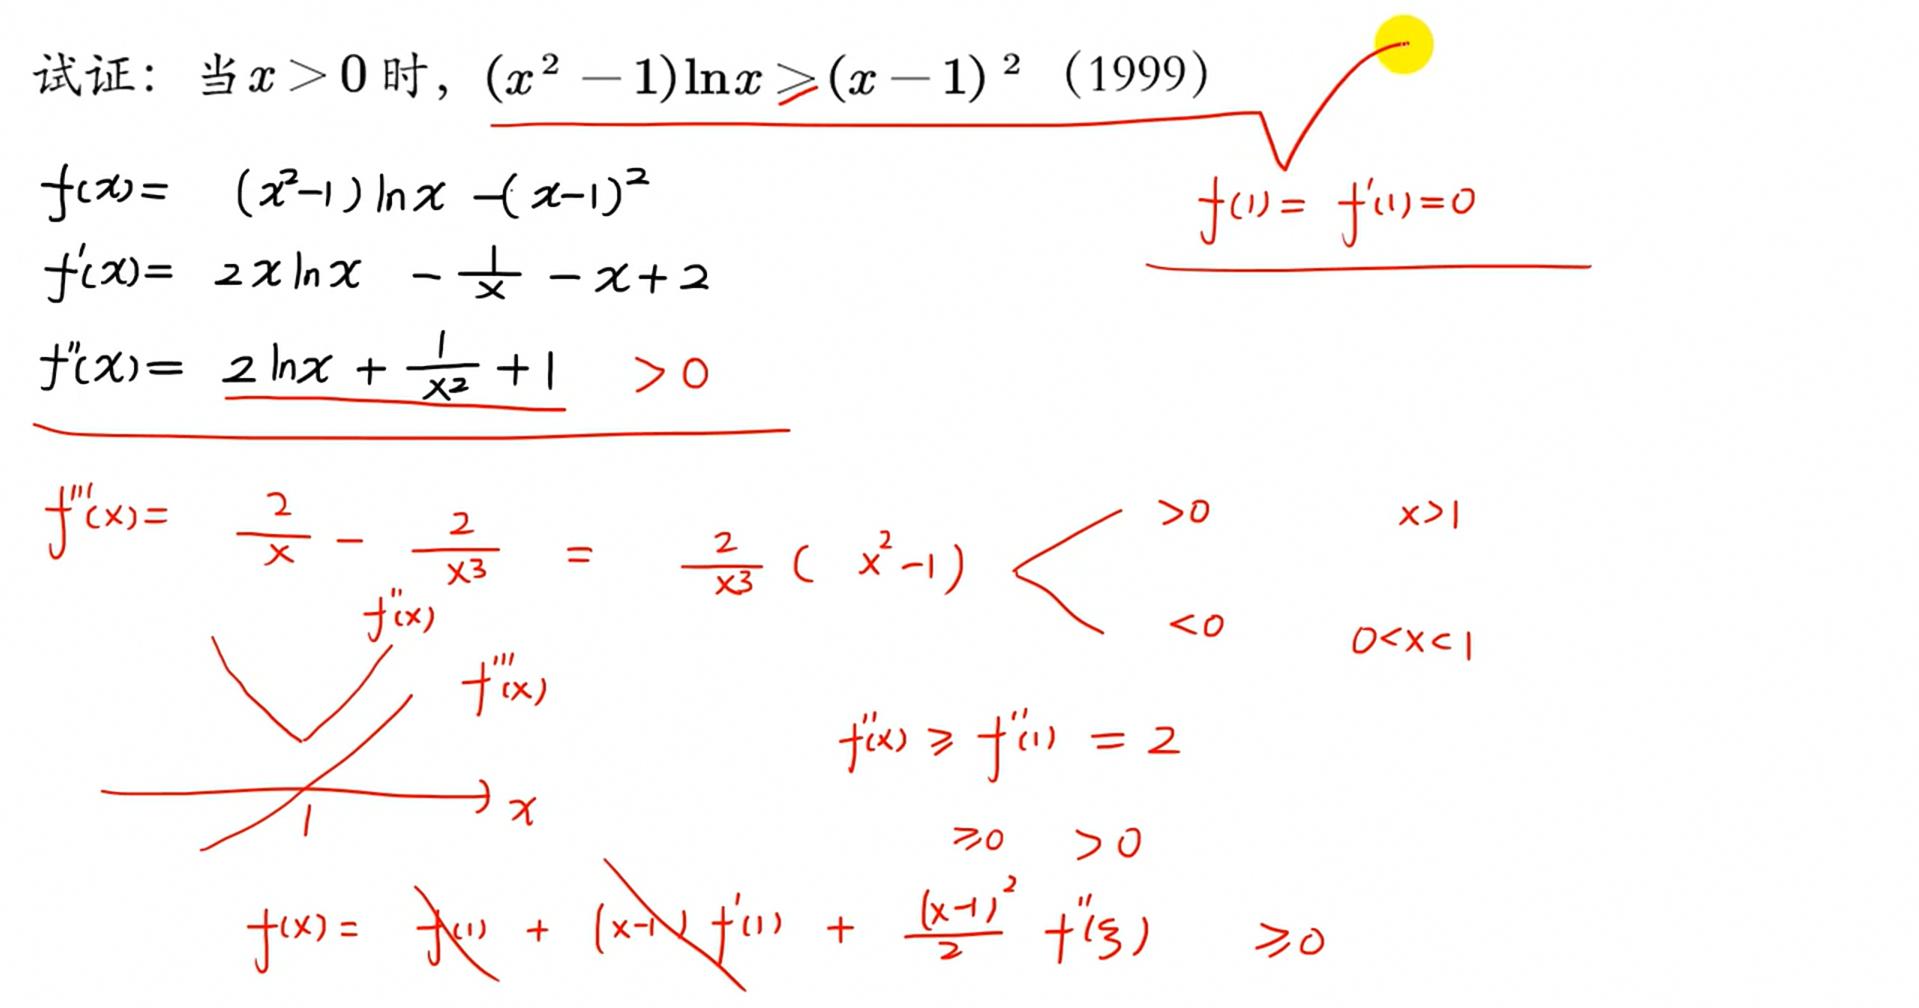 试证：当 x > 0 时，(x² − 1)ln x ⩾ (x − 1)² （1999）
f(x) = (x²−1) ln x −(x−1)²
f(1) = f'(1) = 0
f'(x) = 2x ln x − 1/x − x + 2
f''(x) = 2 ln x + 1/x² + 1 > 0
f'''(x) = 2/x − 2/x³ = 2/x³ ( x²−1)
>0 x>1
<0 0<x<1
f''(x)
f'''(x)
f''(x) ⩾ f''(1) = 2
x
1
⩾0 >0
f(x) = f(1) + (x−1) f'(1) + (x−1)²/2 f''(ξ) ⩾0